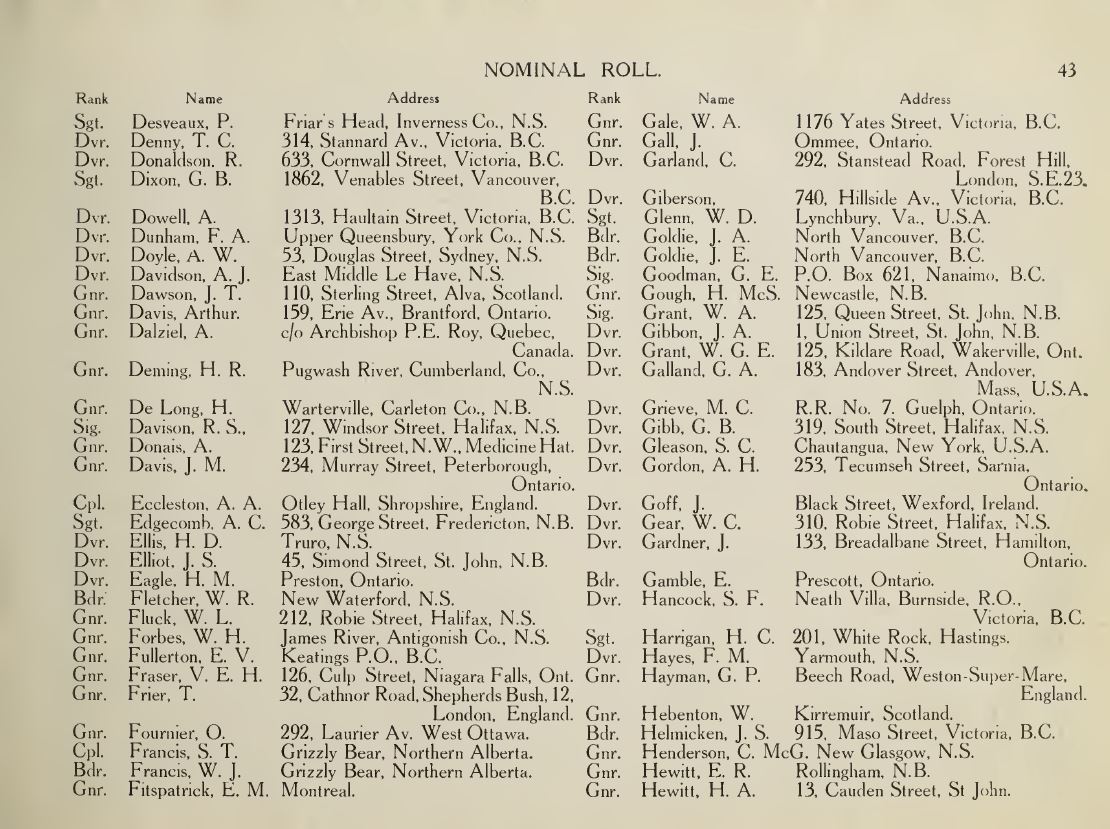 NOMINAL ROLL.
43
Rank Name Address
Sgt. Desveaux, P. Friar's Head, Inverness Co., N.S.
Dvr. Denny, T. C. 314, Stannard Av., Victoria, B.C.
Dvr. Donaldson, R. 633, Cornwall Street, Victoria, B.C.
Sgt. Dixon, G. B. 1862, Venables Street, Vancouver,
B.C.
Dvr. Dowell, A. 1313, Haultain Street, Victoria, B.C.
Dvr. Dunham, F. A. Upper Queensbury, York Co., N.S.
Dvr. Doyle, A. W. 53, Douglas Street, Sydney, N.S.
Dvr. Davidson, A. J. East Middle Le Have, N.S.
Gnr. Dawson, J. T. 110, Sterling Street, Alva, Scotland.
Gnr. Davis, Arthur. 159, Erie Av., Brantford, Ontario.
Gnr. Dalziel, A. c/o Archbishop P.E. Roy, Quebec,
Canada.
Gnr. Deming, H. R. Pugwash River, Cumberland, Co.,
N.S.
Gnr. De Long, H. Warterville, Carleton Co., N.B.
Sig. Davison, R. S., 127, Windsor Street, Halifax, N.S.
Gnr. Donais, A. 123, First Street, N.W., Medicine Hat.
Gnr. Davis, J. M. 234, Murray Street, Peterborough,
Ontario.
Cpl. Eccleston, A. A. Otley Hall, Shropshire, England.
Sgt. Edgecomb, A. C. 583, George Street, Fredericton, N.B.
Dvr. Ellis, H. D. Truro, N.S.
Dvr. Elliot, J. S. 45, Simond Street, St. John, N.B.
Dvr. Eagle, H. M. Preston, Ontario.
Bdr. Fletcher, W. R. New Waterford, N.S.
Gnr. Fluck, W. L. 212, Robie Street, Halifax, N.S.
Gnr. Forbes, W. H. James River, Antigonish Co., N.S.
Gnr. Fullerton, E. V. Keatings P.O., B.C.
Gnr. Fraser, V. E. H. 126, Culp Street, Niagara Falls, Ont.
Gnr. Frier, T. 32, Cathnor Road, Shepherds Bush, 12,
London, England.
Gnr. Fournier, O. 292, Laurier Av. West Ottawa.
Cpl. Francis, S. T. Grizzly Bear, Northern Alberta.
Bdr. Francis, W. J. Grizzly Bear, Northern Alberta.
Gnr. Fitspatrick, E. M. Montreal.
Rank Name Address
Gnr. Gale, W. A. 1176 Yates Street, Victoria, B.C.
Gnr. Gall, J. Ommee, Ontario.
Dvr. Garland, C. 292, Stanstead Road, Forest Hill,
London, S.E.23.
Dvr. Giberson, 740, Hillside Av., Victoria, B.C.
Sgt. Glenn, W. D. Lynchbury, Va., U.S.A.
Bdr. Goldie, J. A. North Vancouver, B.C.
Bdr. Goldie, J. E. North Vancouver, B.C.
Sig. Goodman, G. E. P.O. Box 621, Nanaimo, B.C.
Gnr. Gough, H. McS. Newcastle, N.B.
Sig. Grant, W. A. 125, Queen Street, St. John, N.B.
Dvr. Gibbon, J. A. 1, Union Street, St. John, N.B.
Dvr. Grant, W. G. E. 125, Kildare Road, Wakerville, Ont.
Dvr. Galland, G. A. 183, Andover Street, Andover,
Mass, U.S.A.
Dvr. Grieve, M. C. R.R. No. 7. Guelph, Ontario.
Dvr. Gibb, G. B. 319, South Street, Halifax, N.S.
Dvr. Gleason, S. C. Chautangua, New York, U.S.A.
Dvr. Gordon, A. H. 253, Tecumseh Street, Sarnia,
Ontario.
Dvr. Goff, J. Black Street, Wexford, Ireland.
Dvr. Gear, W. C. 310, Robie Street, Halifax, N.S.
Dvr. Gardner, J. 133, Breadalbane Street, Hamilton,
Ontario.
Bdr. Gamble, E. Prescott, Ontario.
Dvr. Hancock, S. F. Neath Villa, Burnside, R.O.,
Victoria, B.C.
Sgt. Harrigan, H. C. 201, White Rock, Hastings.
Dvr. Hayes, F. M. Yarmouth, N.S.
Gnr. Hayman, G. P. Beech Road, Weston-Super-Mare,
England.
Gnr. Hebenton, W. Kirremuir, Scotland.
Bdr. Helmicken, J. S. 915, Maso Street, Victoria, B.C.
Gnr. Henderson, C. McG. New Glasgow, N.S.
Gnr. Hewitt, E. R. Rollingham, N.B.
Gnr. Hewitt, H. A. 13, Cauden Street, St John.